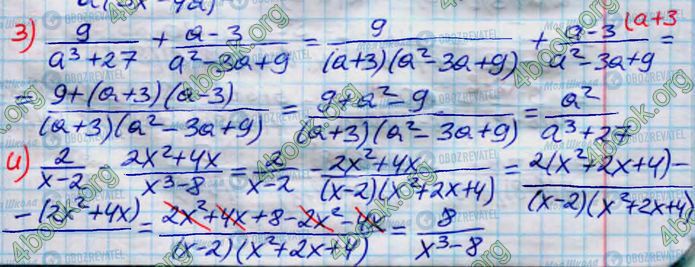 a(3x-4a)
3) 9/(a³+27) + (a-3)/(a²-3a+9) = 9/((a+3)(a²-3a+9)) + (a-3)/(a²-3a+9) (a+3 =
= (9+(a+3)(a-3))/((a+3)(a²-3a+9)) = (9+a²-9)/((a+3)(a²-3a+9)) = a²/(a³+27)
4) 2/(x-2) - (2x²+4x)/(x³-8) = 2/(x-2) - (2x²+4x)/((x-2)(x²+2x+4)) = 2(x²+2x+4)-/(x-2)(x²+2x+4)
-(2x²+4x) = (2x²+4x+8-2x²-4x)/((x-2)(x²+2x+4)) = 8/(x³-8)